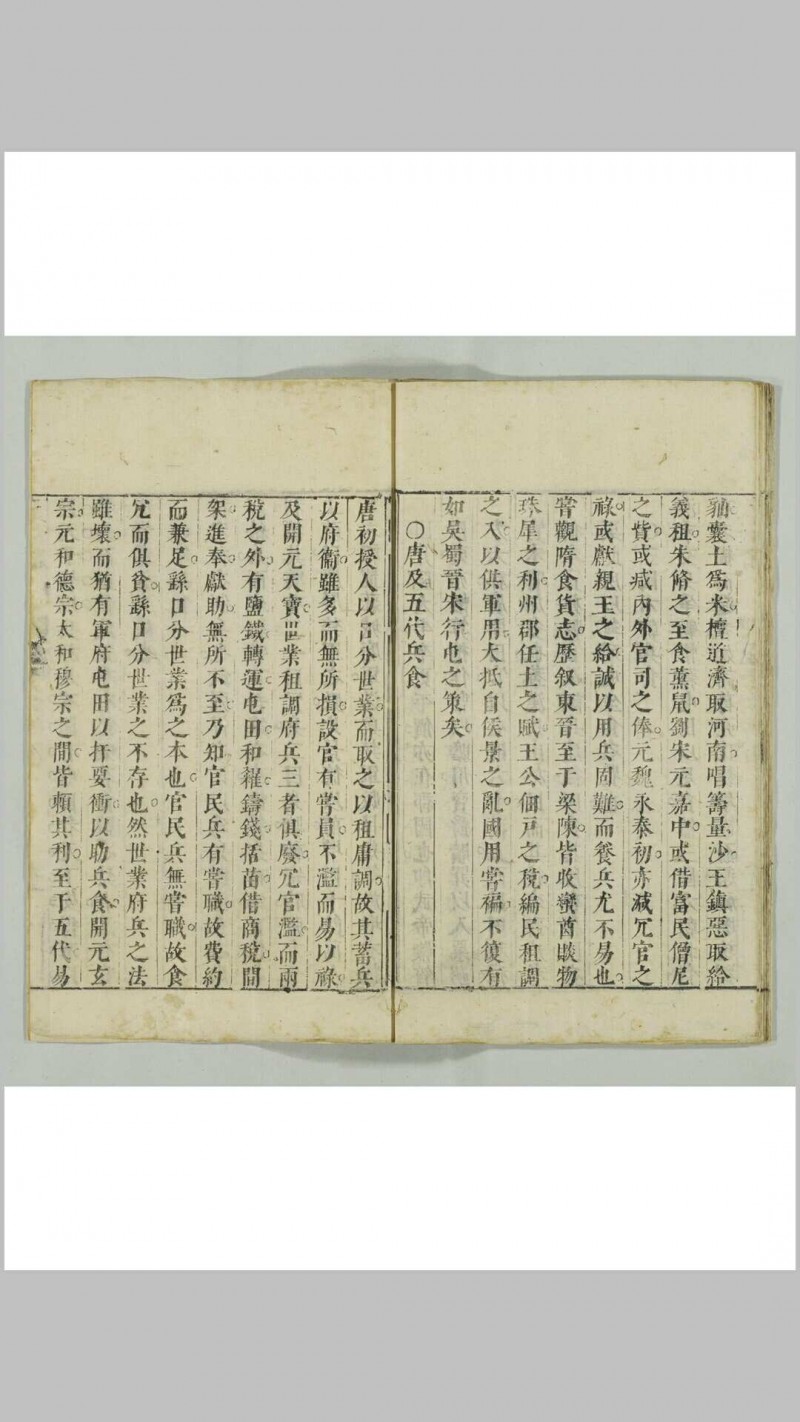 囊土爲米檀道濟取河南唱籌量沙王鎮惡取給
義租朱脩之至食薰鼠劉宋元嘉中或借富民僧尼
之貲或減內外官司之俸元魏永泰初亦減冗官之
祿或獻親王之給誠以用兵固難而養兵尤不易也
甞觀隋食貨志歷叙東晉至于梁陳皆收蠻酋賧物
珠犀之利州郡任土之賦王公佃戸之稅編民租調
之入以供軍用大抵自侯景之亂國用窘褊不復有
如吳蜀晉宋行屯之策矣
○唐及五代兵食
唐初授人以口分世業而取之以租庸調故其蓄兵
以府衞雖多而無所損設官有常員不濫而易以祿
及開元天寳世業租調府兵三者俱廢冗官濫而兩
稅之外有鹽鐵轉運屯田和糴鑄錢括苗借商稅間
架進奉獻助無所不至乃知官民兵有常職故費約
而兼足繇口分世業爲之本也官民兵無常職故食
冗而俱貧繇口分世業之不存也然世業府兵之法
雖壞而猶有軍府屯田以扞要衝以助兵食開元玄
宗元和德宗太和穆宗之間皆頼其利至于五代易